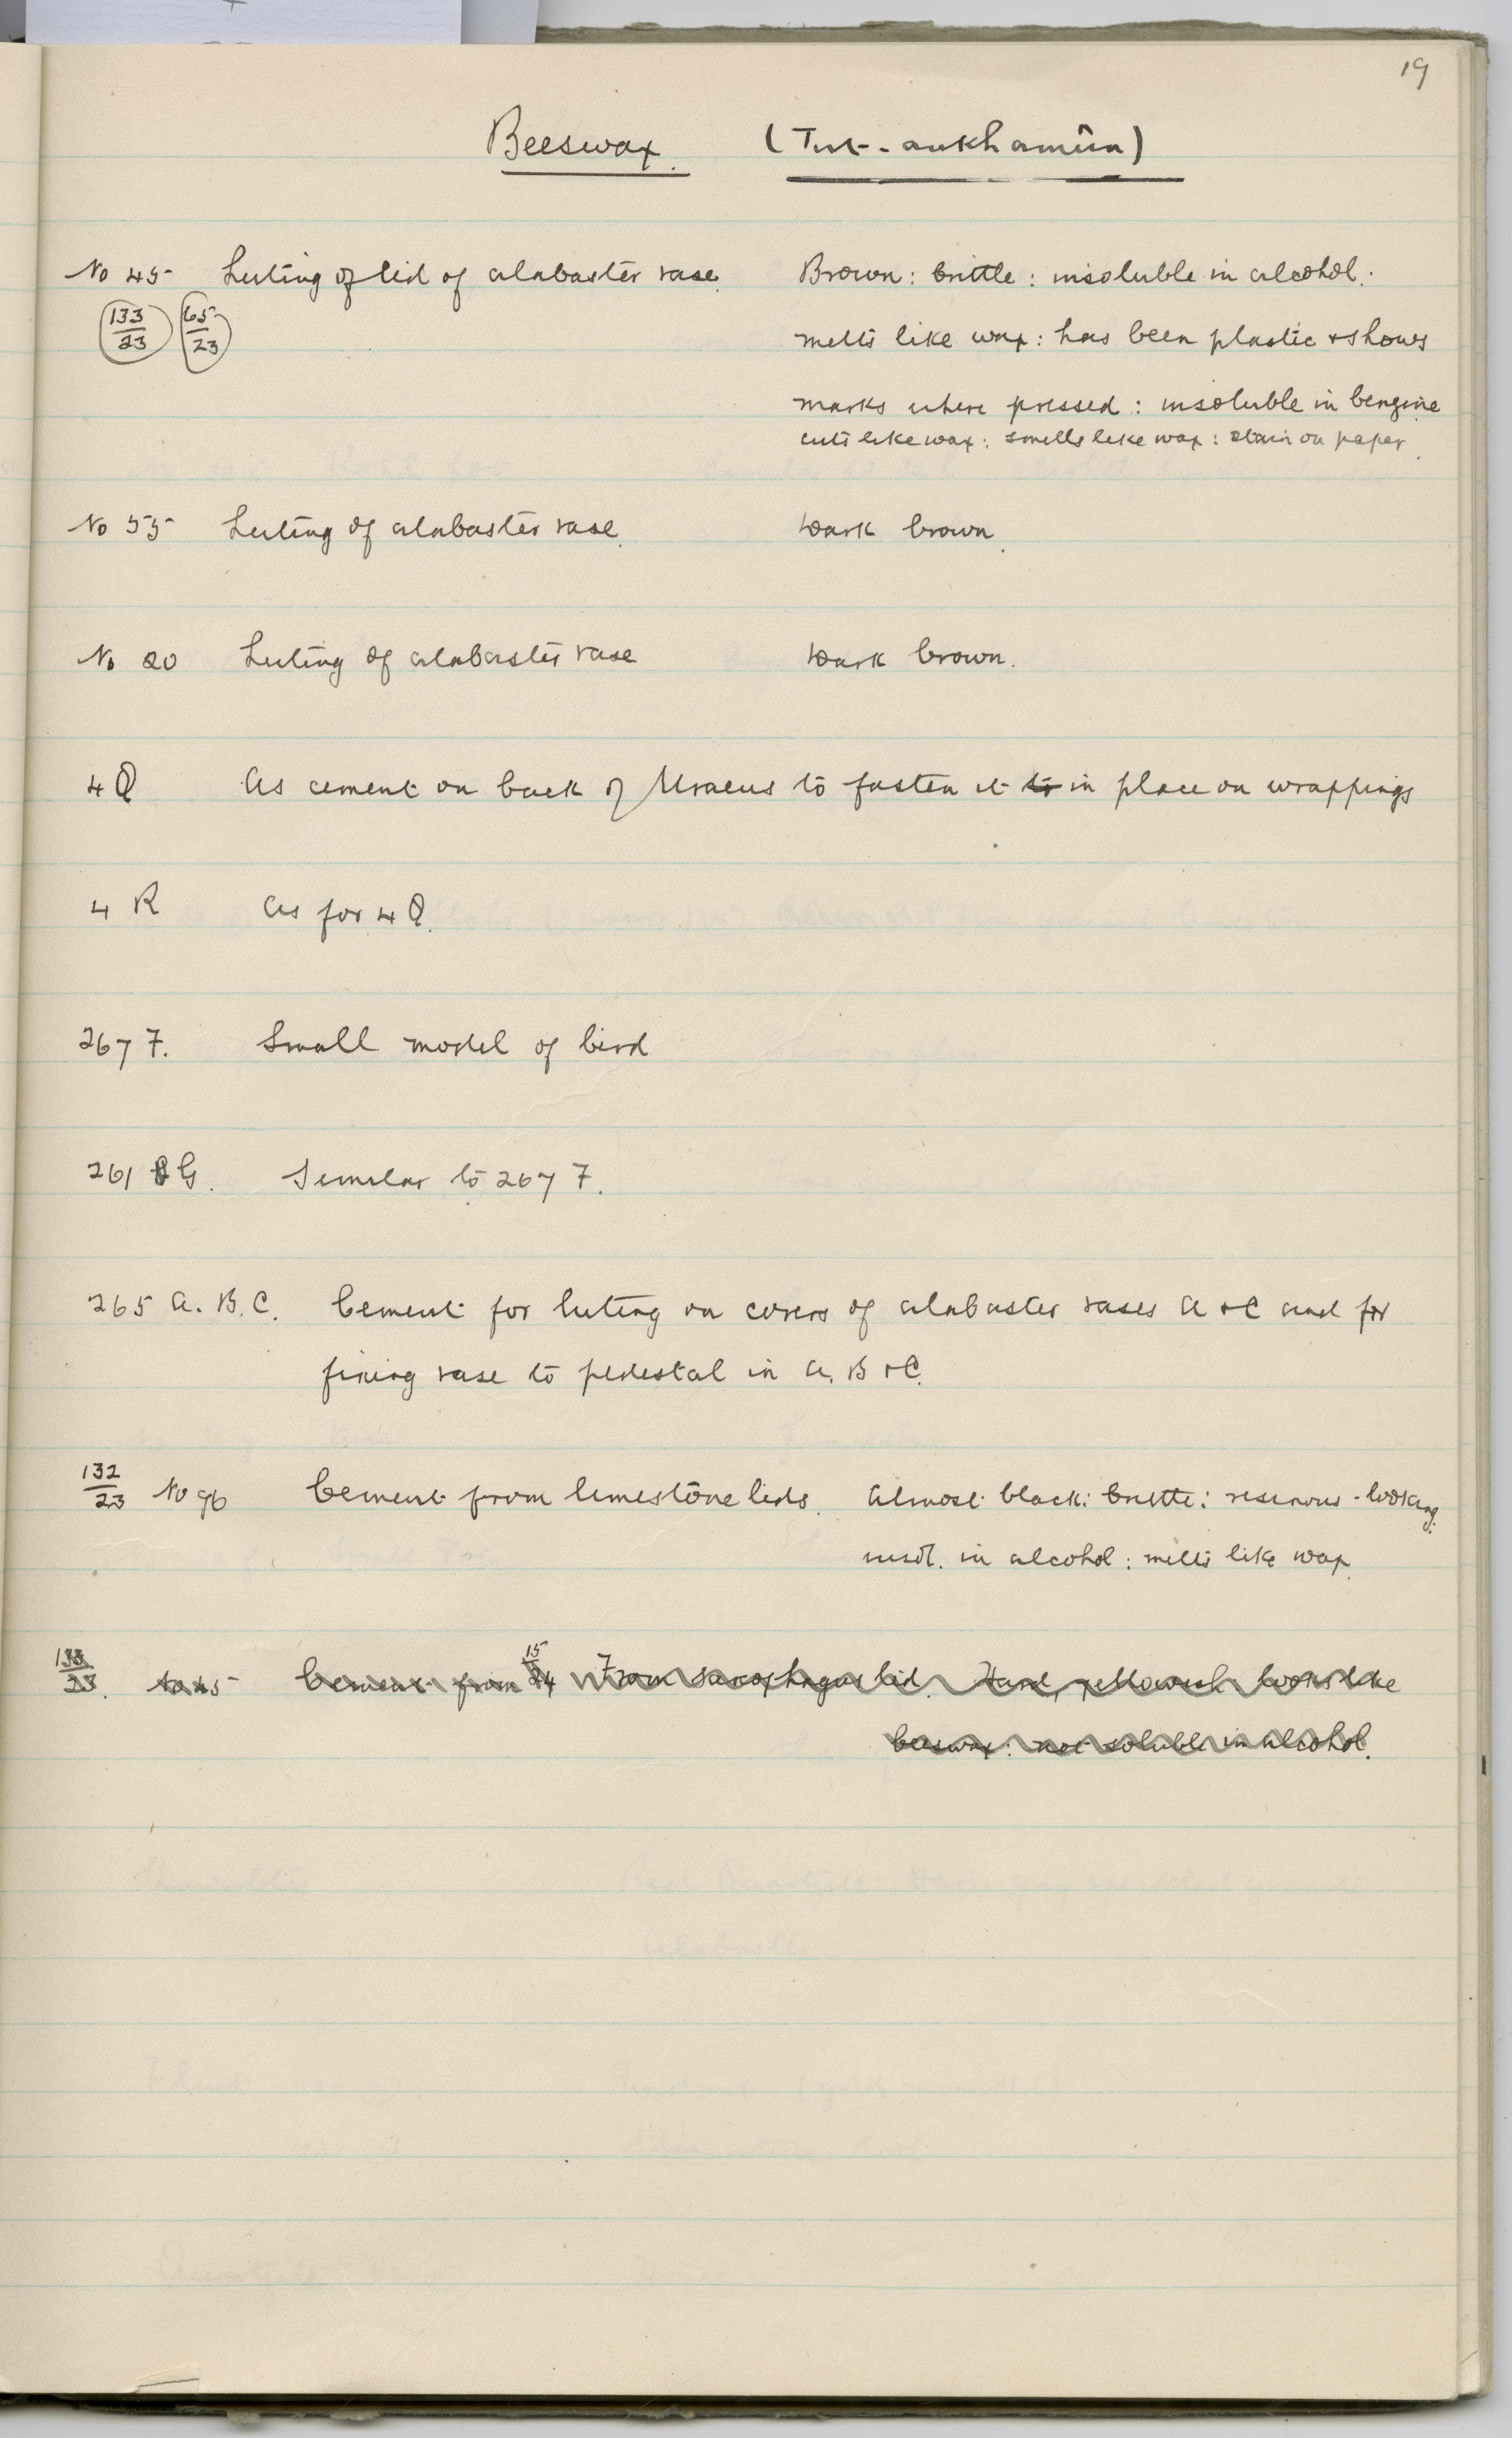 19
Beeswax. (Tut-ankhamûn)
No 45 Luting of lid of alabaster vase. Brown: brittle: insoluble in alcohol:
133/23 65/23 melts like wax: has been plastic + shows
marks where pressed: insoluble in benzine
cuts like wax: smells like wax: stain on paper.
No 55 Luting of alabaster vase. Dark brown.
No 20 Luting of alabaster vase Dark brown.
4 Q As cement on back of Uraeus to fasten it to in place on wrappings
4 R As for 4 Q.
267 F. Small model of bird
261 G. Similar to 267 F.
265 A. B. C. Cement for luting on covers of alabaster vases A + C and for
fixing vase to pedestal in A, B + C.
132/23 No 96 Cement from limestone lids. Almost black: brittle: resinous-looking:
insol. in alcohol: melts like wax.
133/23. No 45 Cement from 15/24 From sarcophagus lid. Hard, yellowish. looks like
beeswax: not soluble in alcohol.